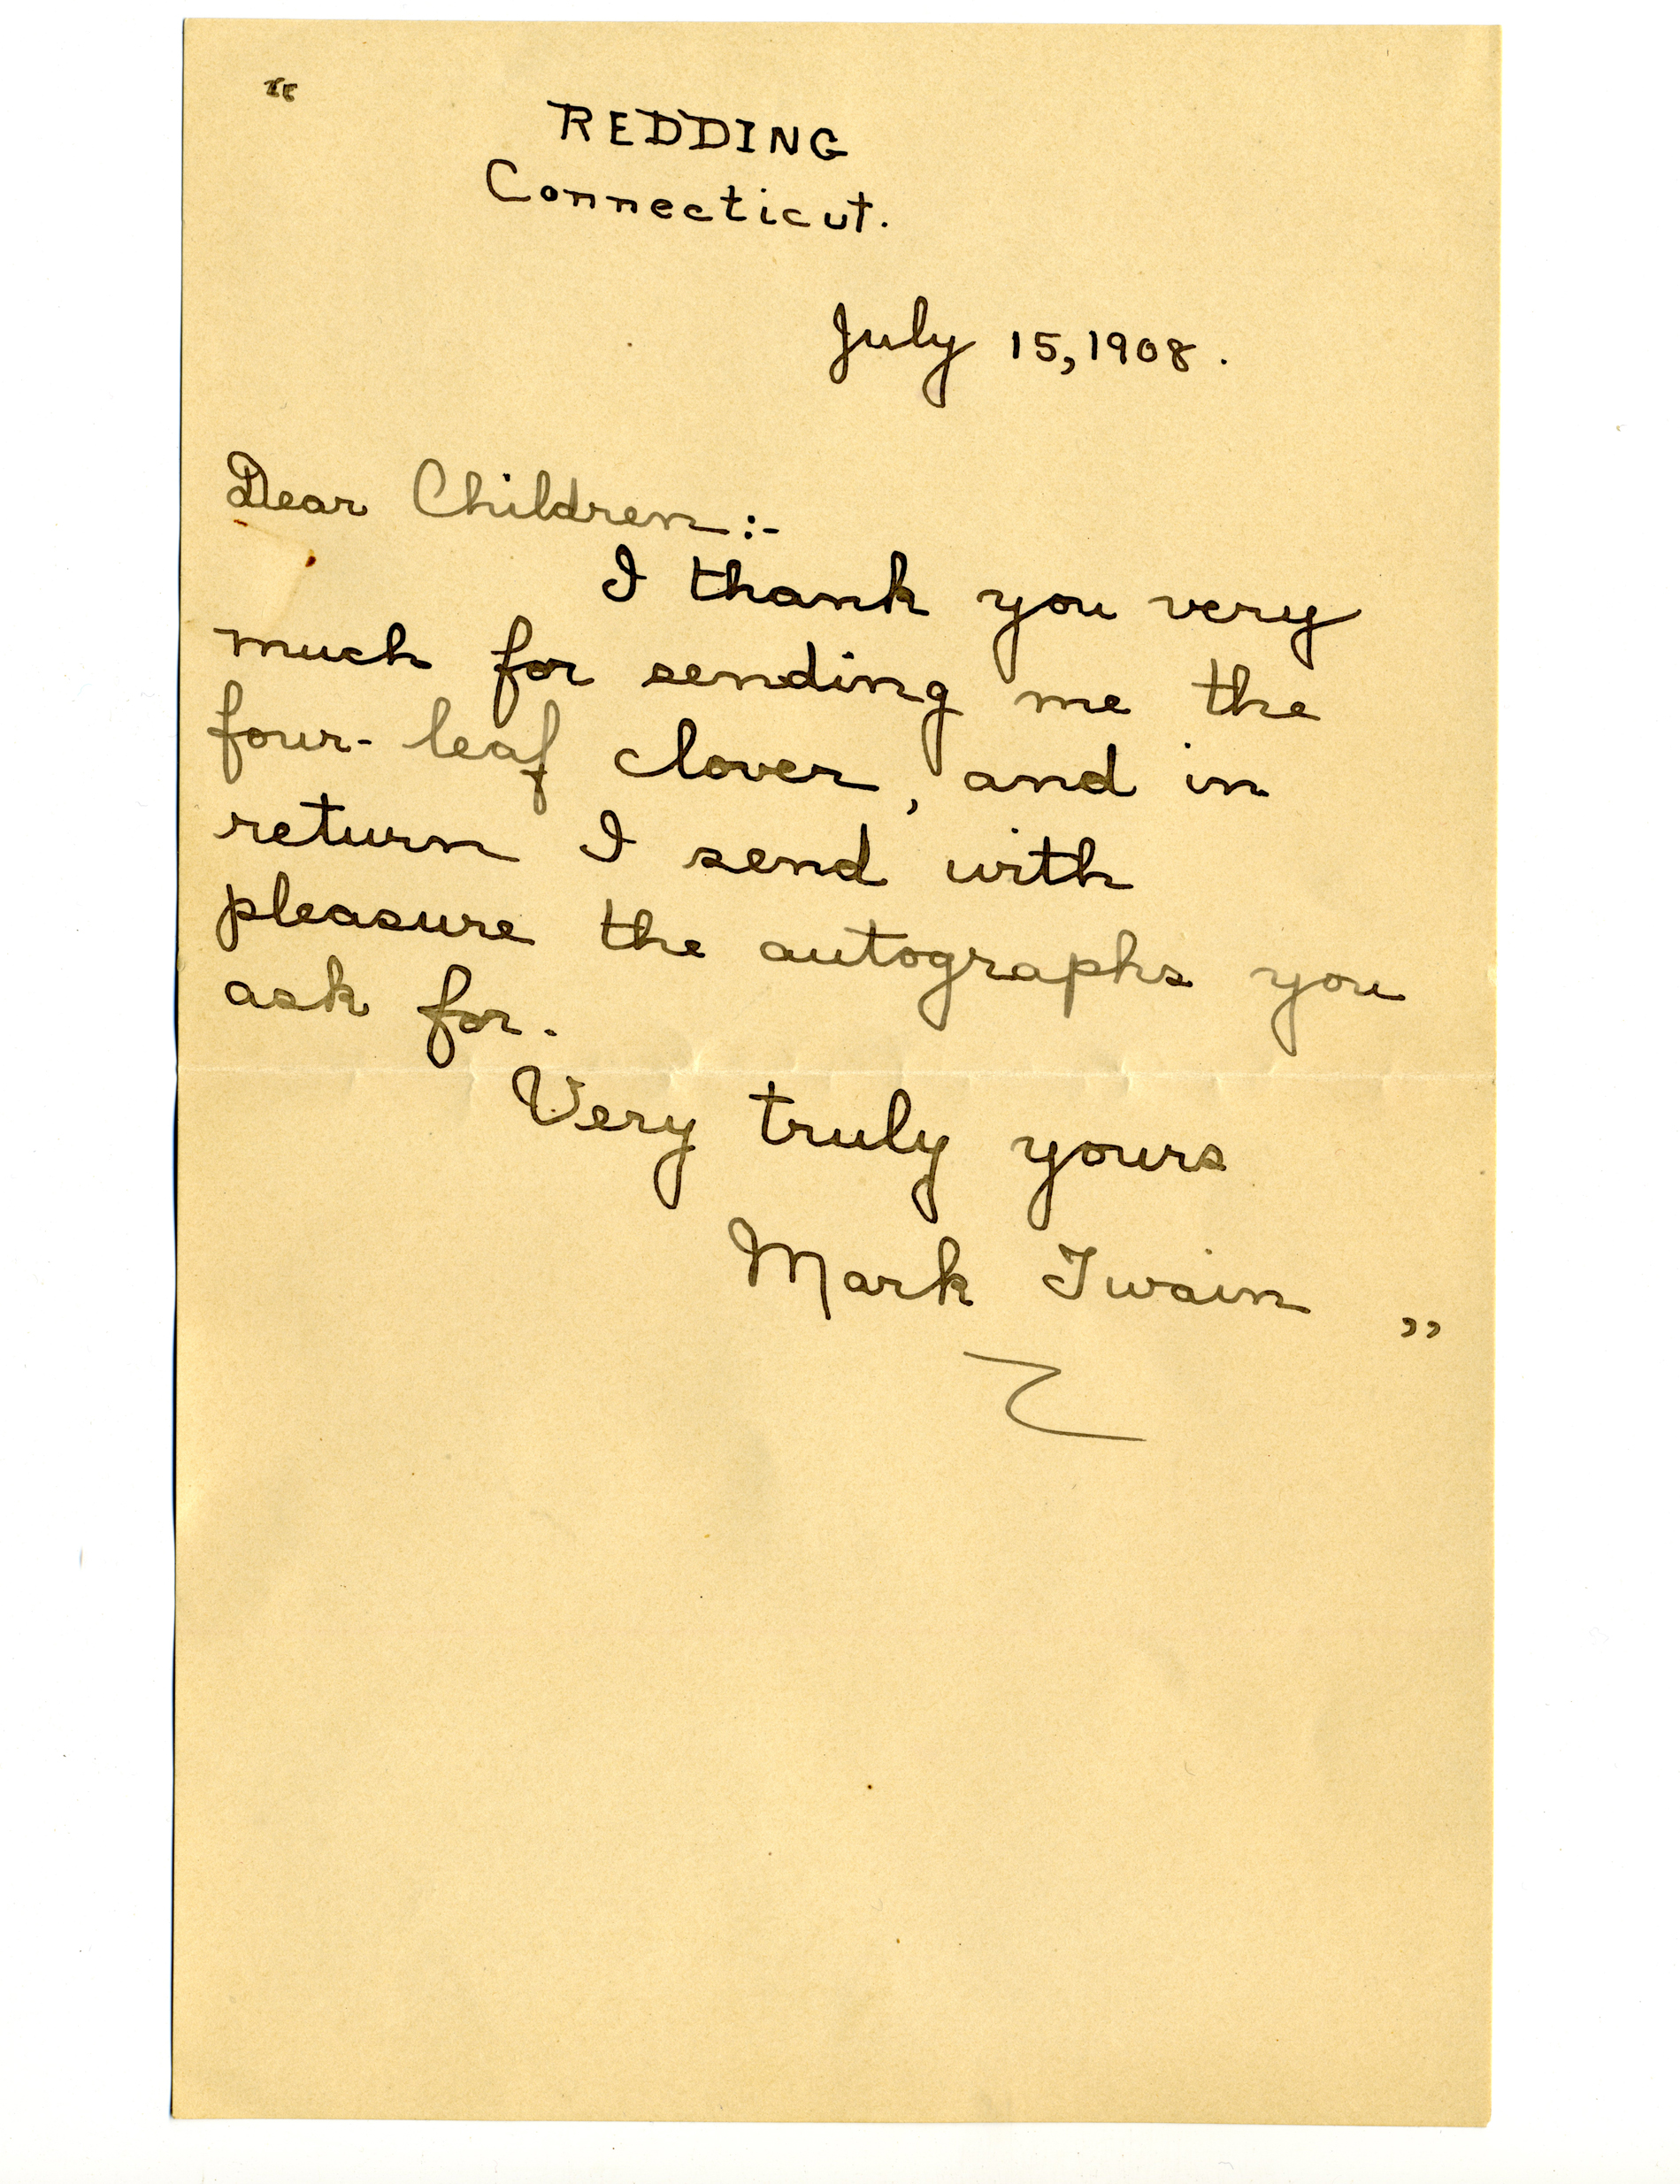 "
REDDING
Connecticut.
July 15, 1908.
Dear Children:-
I thank you very
much for sending me the
four-leaf clover, and in
return I send with
pleasure the autographs you
ask for.
Very truly yours
Mark Twain "